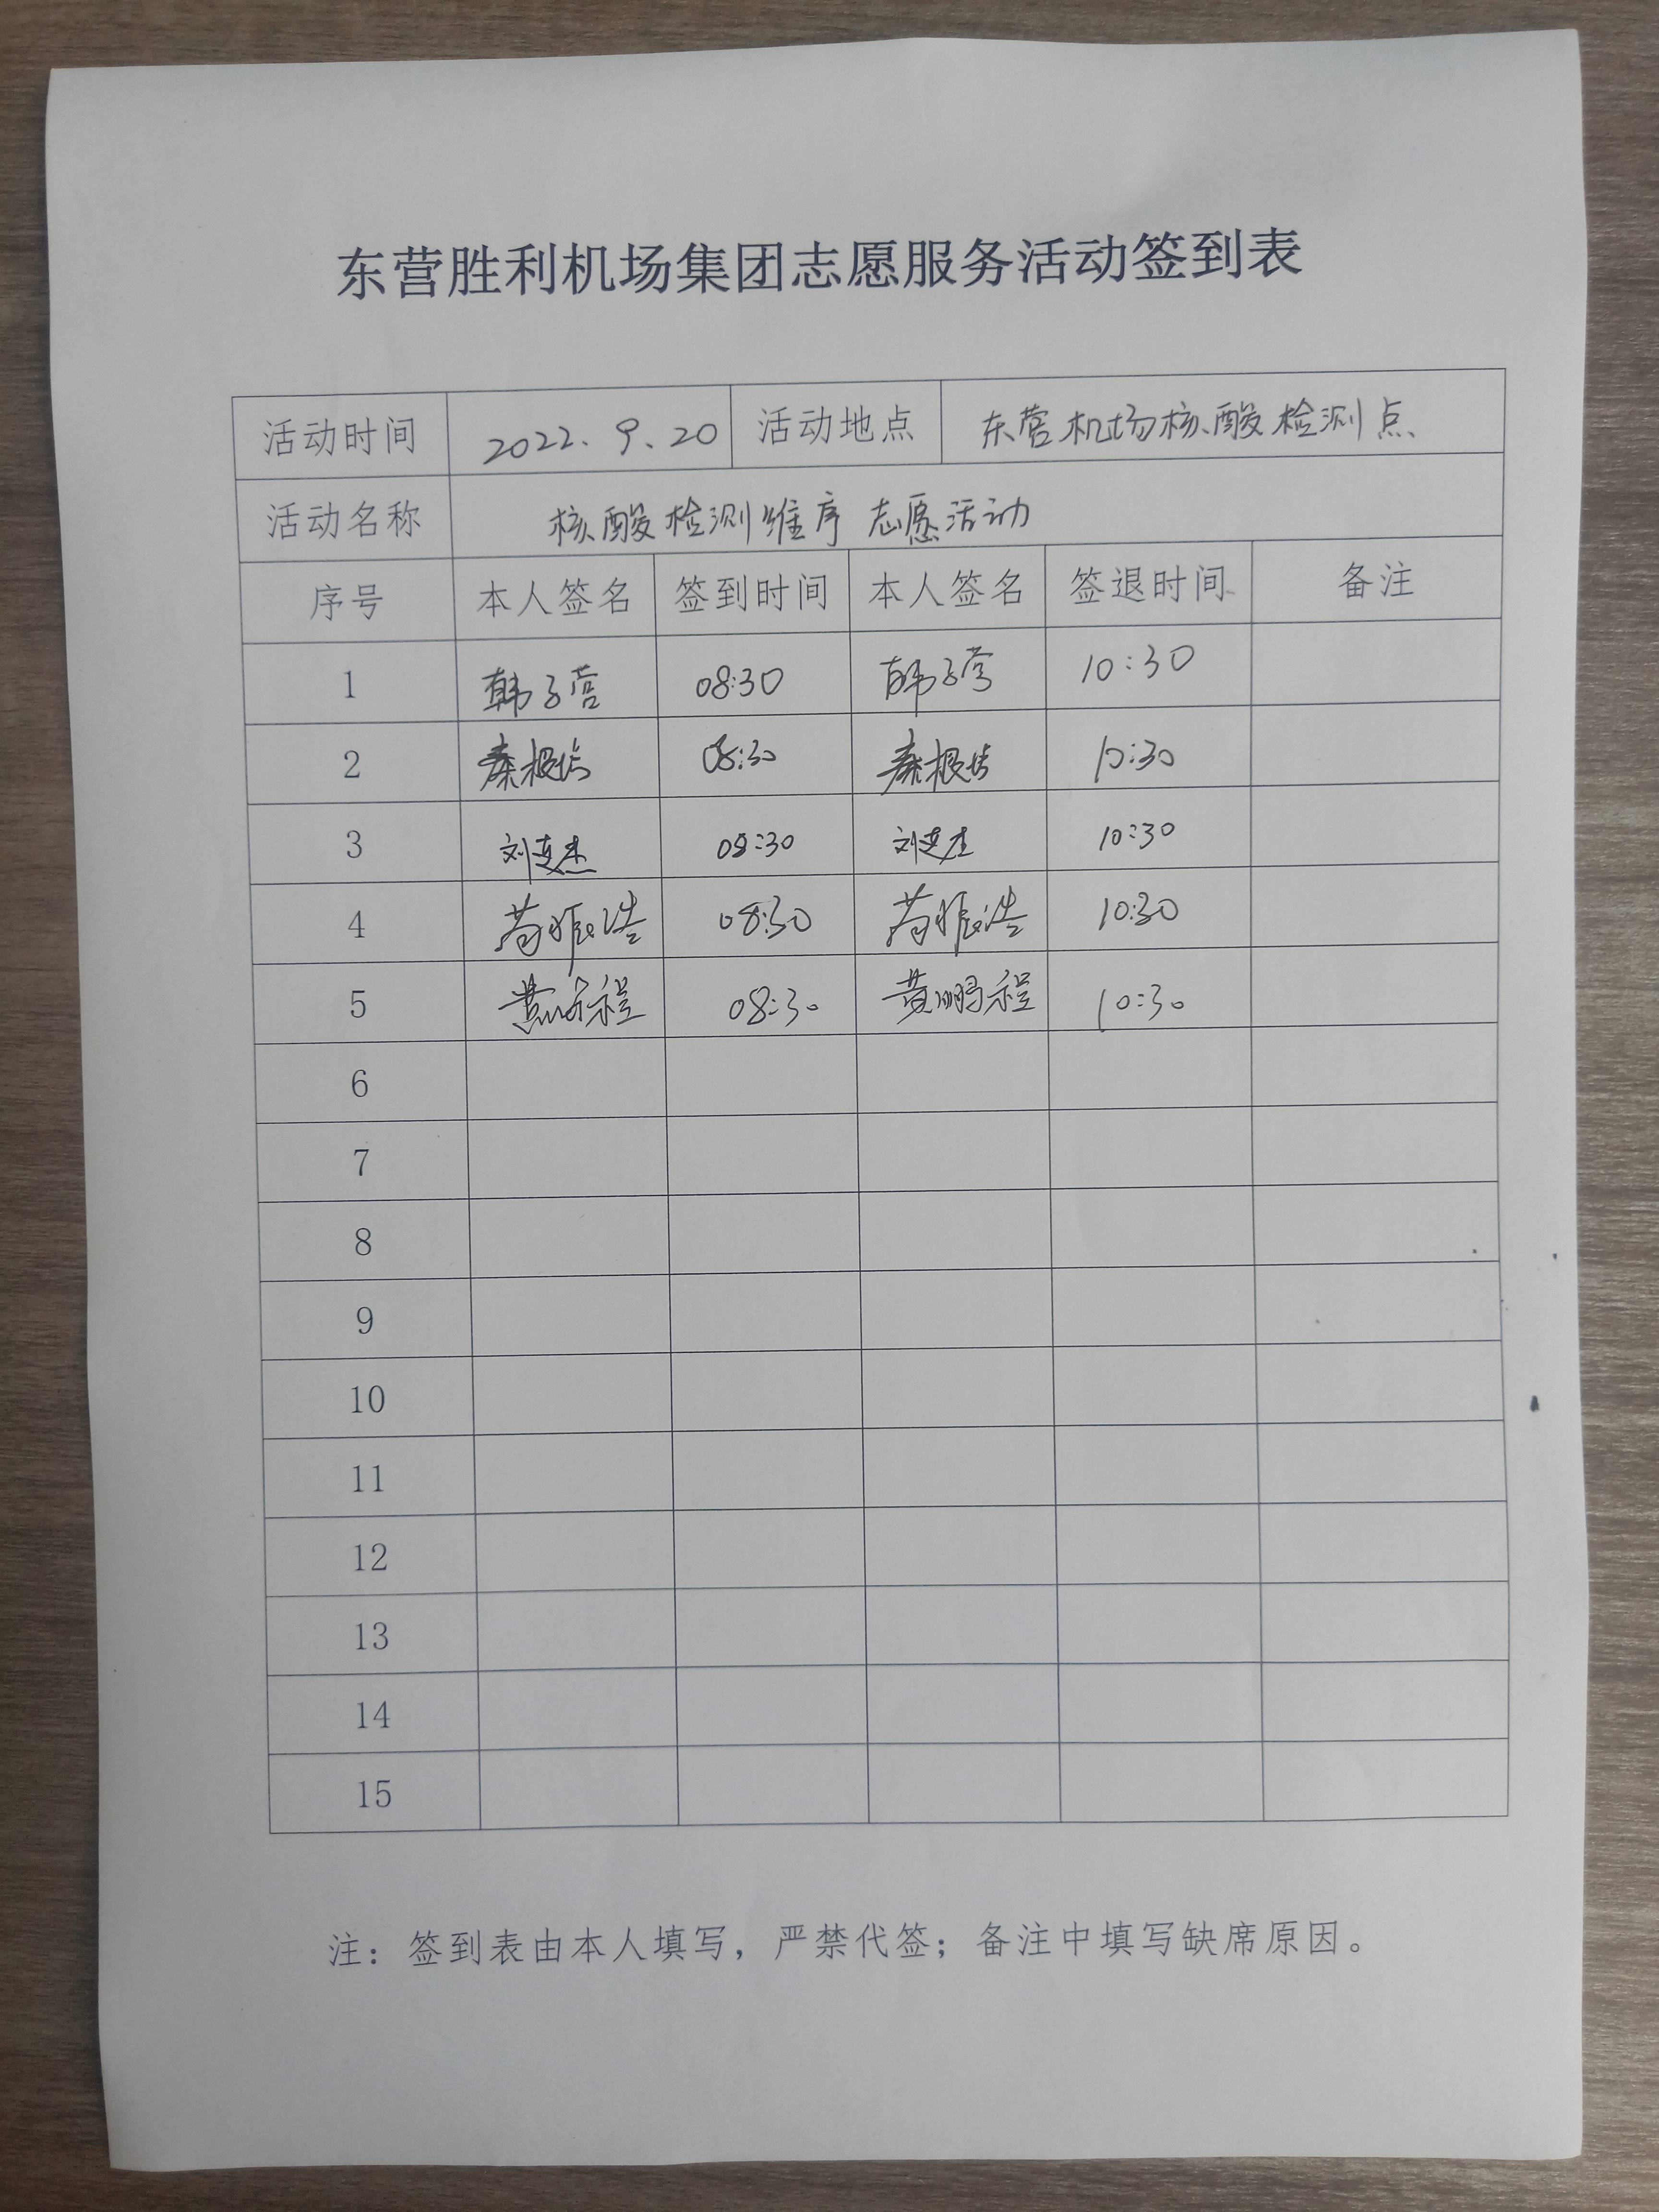 东营胜利机场集团志愿服务活动签到表
活动时间 2022.9.20 活动地点 东营机场核酸检测点
活动名称 核酸检测维序志愿活动
序号 本人签名 签到时间 本人签名 签退时间 备注
1 韩子营 08:30 韩子营 10:30
2 08:30 10:30
3 08:30 10:30
4 08:30 10:30
5 黄鹏程 08:30 黄鹏程 10:30
6
7
8
9
10
11
12
13
14
15
注：签到表由本人填写，严禁代签；备注中填写缺席原因。